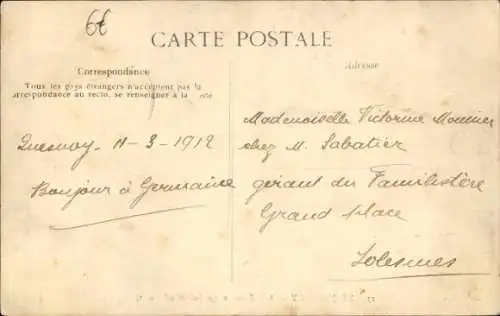 6€
CARTE POSTALE
Correspondance
Tous les pays étrangers n'acceptent pas la
correspondance au recto, se renseigner à la poste
Adresse
Quesnoy. 11-3-1912
Bonjour à Germaine
Mademoiselle Victorine Meunier
chez M. Sabatier
gérant du Familistère
Grand place
Solesmes